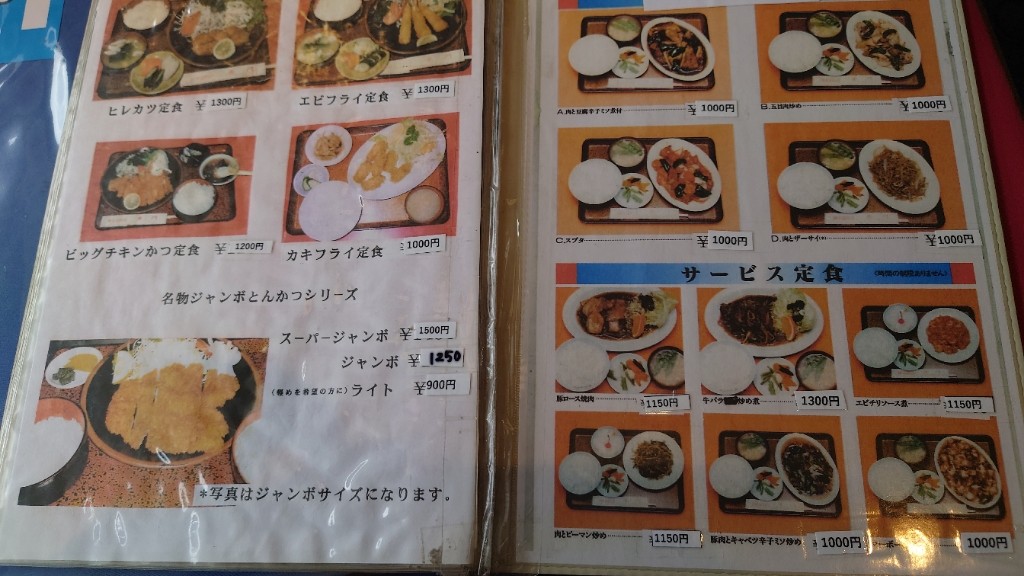 ヒレカツ定食 ¥1300円
エビフライ定食 ¥1300円
ビッグチキンかつ定食 ¥1200円
カキフライ定食 1000円
名物ジャンボとんかつシリーズ
スーパージャンボ ¥1500円
ジャンボ ¥1250
(軽めを希望の方に)ライト ¥900円
*写真はジャンボサイズになります。
A.肉と豆腐辛子ミソ煮付 ¥1000円
B.五目肉炒め ¥1000円
C.スブタ ¥1000円
D.肉とザーサイ ¥1000円
サービス定食 (時間の制限ありません)
豚ロース焼肉 1150円
牛バラ 炒め煮 1300円
エビチリソース煮 1150円
肉とピーマン炒め 1150円
豚肉とキャベツ辛子ミソ炒め 1000円
1000円